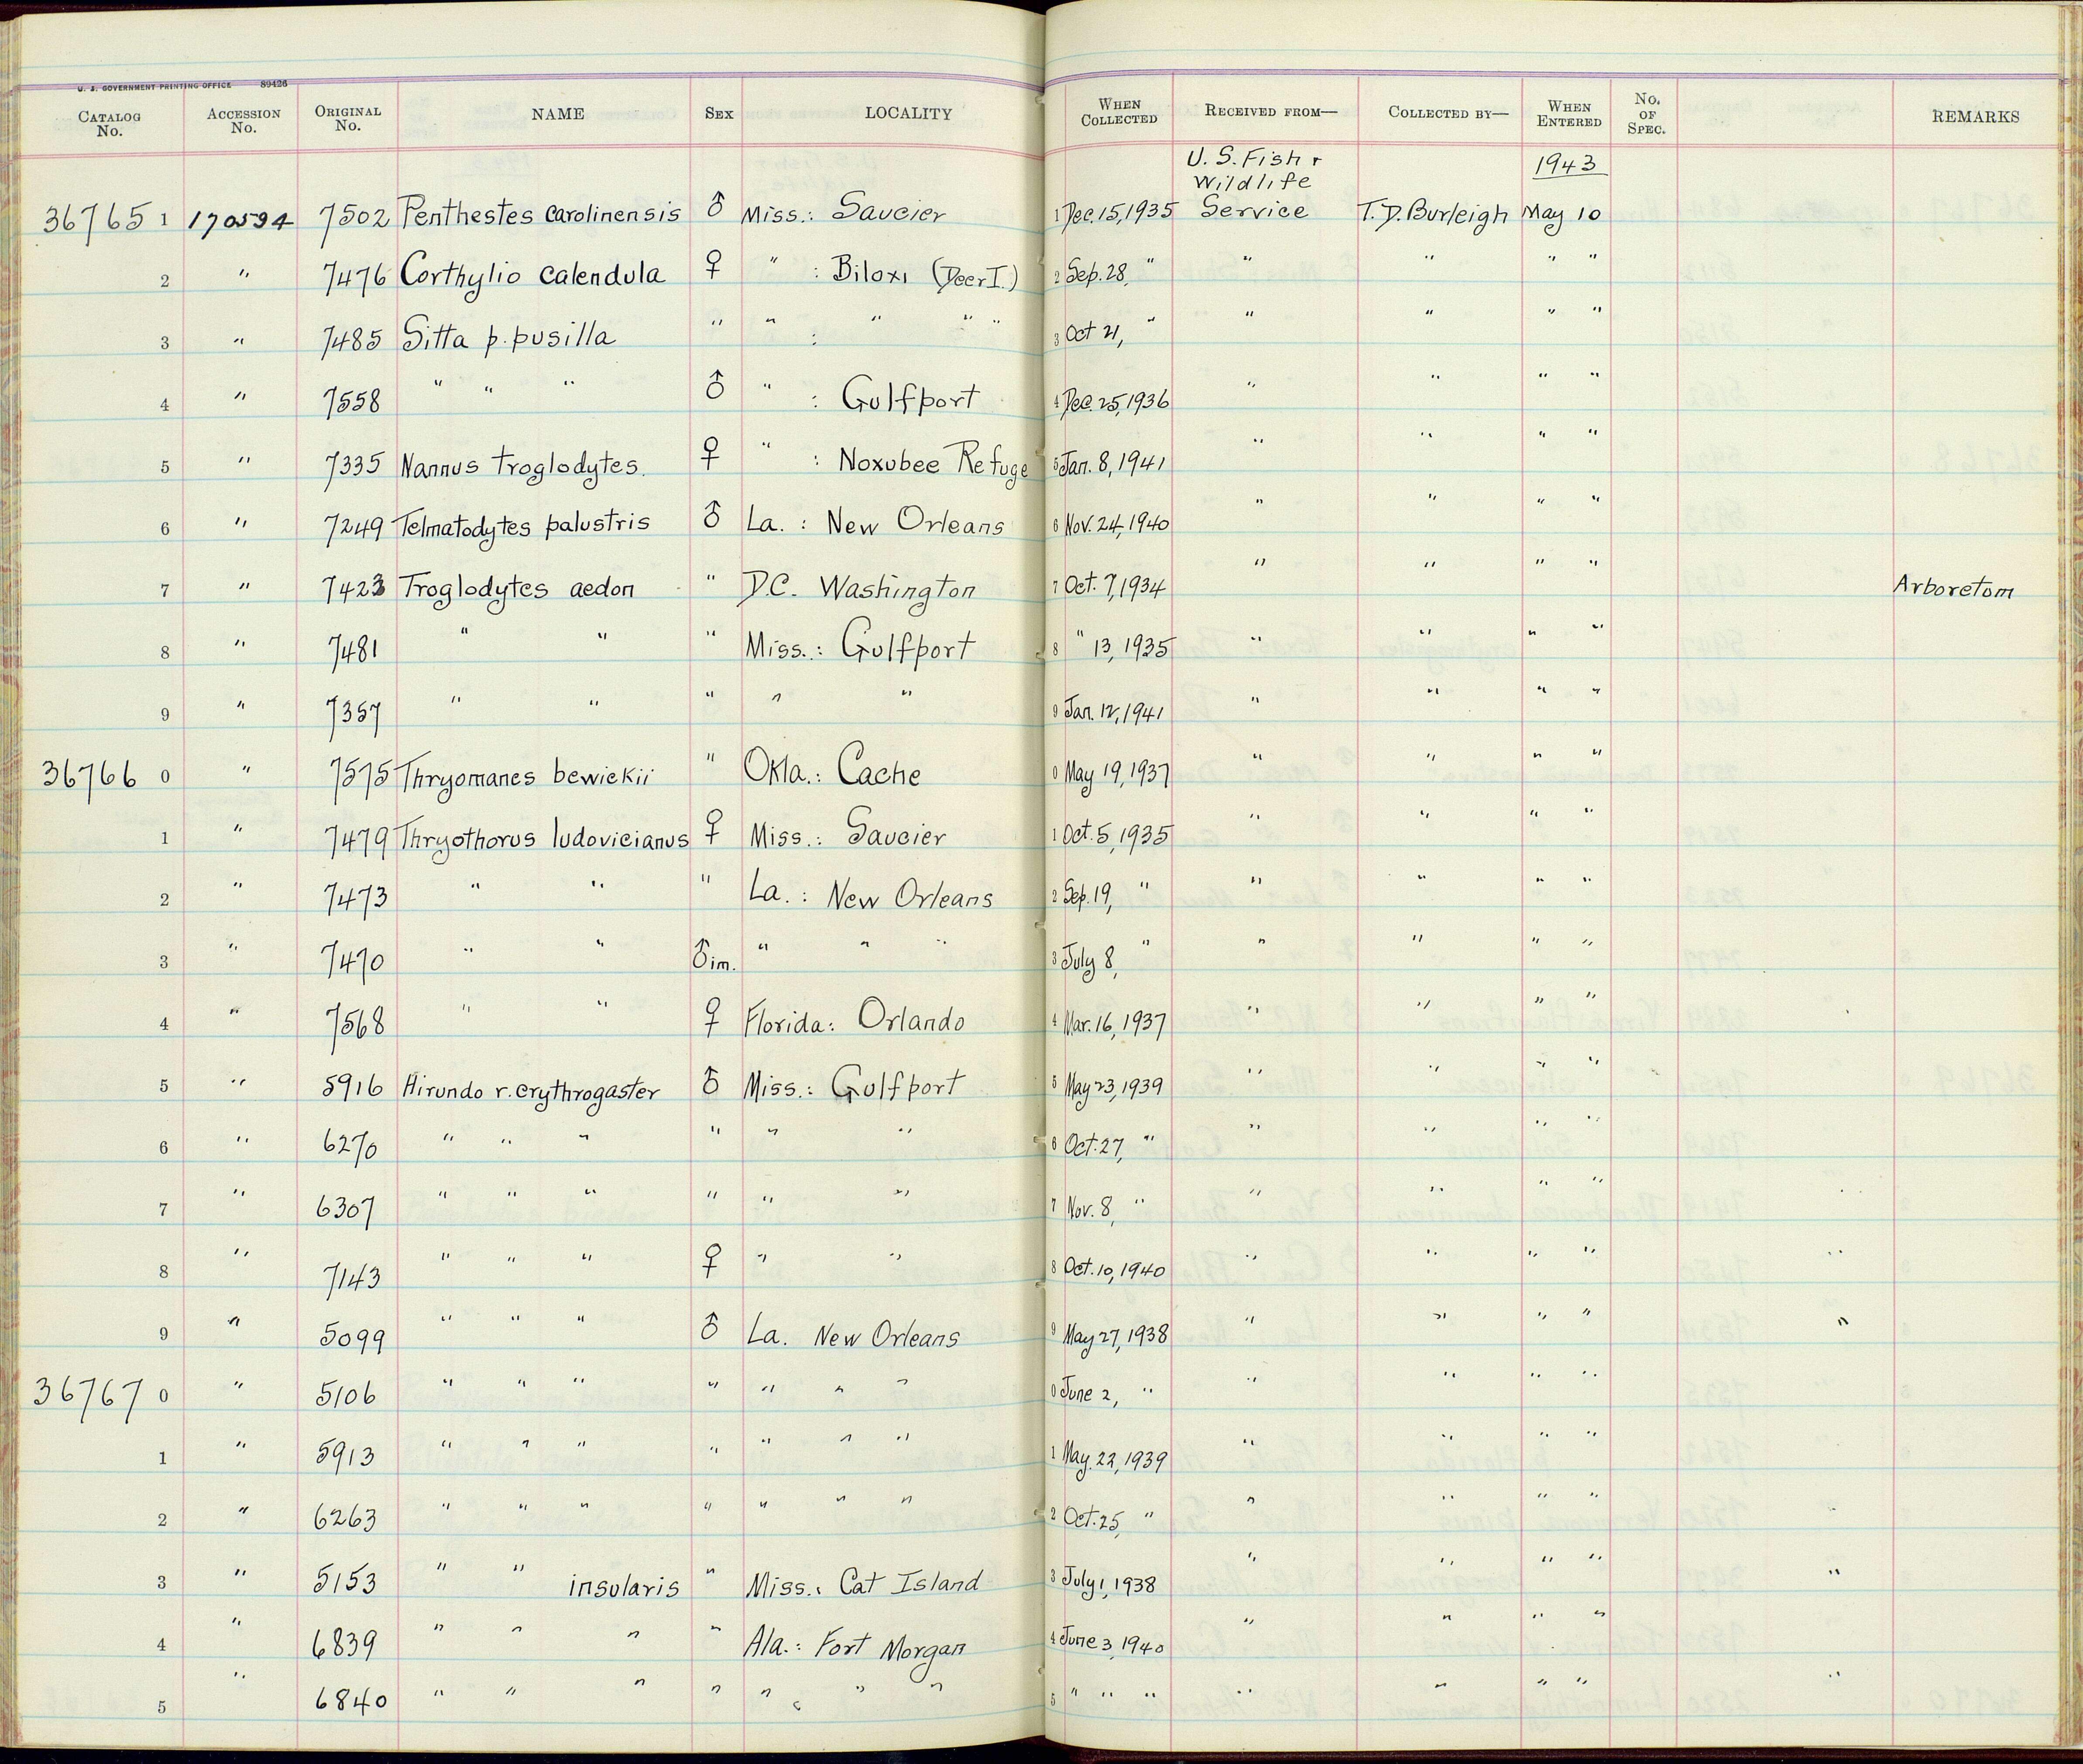 U. S. GOVERNMENT PRINTING OFFICE 89426
CATALOG No. ACCESSION No. ORIGINAL No. NAME SEX LOCALITY WHEN COLLECTED RECEIVED FROM— COLLECTED BY— WHEN ENTERED No. OF SPEC. REMARKS
U. S. Fish + Wildlife 1943
36765 1 170594 7502 Penthestes carolinensis ♂ Miss.: Saucier 1 Dec. 15, 1935 Service T. D. Burleigh May 10
2 " 7476 Corthylio calendula ♀ " : Biloxi (Deer I.) 2 Sep. 28, " " " " "
3 " 7485 Sitta p. pusilla " " : " " " 3 Oct 21, " " " " "
4 " 7558 " " " ♂ " : Gulfport 4 Dec. 25, 1936 " " " "
5 " 7335 Nannus troglodytes. ♀ " : Noxubee Refuge 5 Jan. 8, 1941 " " " "
6 " 7249 Telmatodytes palustris ♂ La. : New Orleans 6 Nov. 24, 1940 " " " "
7 " 7423 Troglodytes aedon " D.C. Washington 7 Oct. 7, 1934 " " " " Arboretum
8 " 7481 " " " Miss.: Gulfport 8 " 13, 1935 " " " "
9 " 7357 " " " " " 9 Jan. 12, 1941 " " " "
36766 0 " 7575 Thryomanes bewickii " Okla.: Cache 0 May 19, 1937 " " " "
1 " 7479 Thryothorus ludovicianus ♀ Miss.: Saucier 1 Oct. 5, 1935 " " " "
2 " 7473 " " " La. : New Orleans 2 Sep. 19, " " " " "
3 " 7470 " " ♂ im. " " " 3 July 8, " " " " "
4 " 7568 " " ♀ Florida: Orlando 4 Mar. 16, 1937 " " " "
5 " 5916 Hirundo r. erythrogaster ♂ Miss.: Gulfport 5 May 23, 1939 " " " "
6 " 6270 " " " " " " 6 Oct. 27, " " " " "
7 " 6307 " " " " " " 7 Nov. 8, " " " " "
8 " 7143 " " " ♀ " " 8 Oct. 10, 1940 " " " " "
9 " 5099 " " " ♂ La. New Orleans 9 May 27, 1938 " " " " "
36767 0 " 5106 " " " " " " " 0 June 2, " " " " "
1 " 5913 " " " " " " " 1 May. 22, 1939 " " " "
2 " 6263 " " " " " " " 2 Oct. 25, " " " " "
3 " 5153 " " insularis " Miss.: Cat Island 3 July 1, 1938 " " " " "
4 " 6839 " " " " Ala.: Fort Morgan 4 June 3, 1940 " " " "
5 " 6840 " " " " " : " " 5 " " " " " " " "